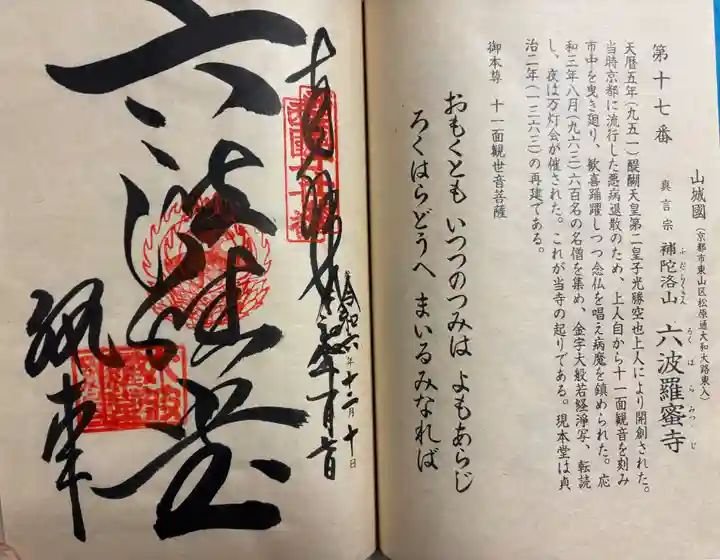 第十七番
山城國（京都市東山区松原通大和大路東入）
真言宗 補陀洛山 六波羅蜜寺
ふだらくさん
ろくはらみつじ
天暦五年（九五一）醍醐天皇第二皇子光勝空也上人により開創された。
当時京都に流行した悪病退散のため、上人自から十一面観音を刻み
市中を曳き廻り、歓喜踊躍しつつ念仏を唱え病魔を鎮められた。応
和三年八月（九六三）六百名の名僧を集め、金字大般若経浄写、転読
し、夜は万灯会が催された。これが当寺の起りである。現本堂は貞
治二年（一三六三）の再建である。
御本尊 十一面観世音菩薩
おもくとも いつつのつみは よもあらじ
ろくはらどうへ まいるみなれば
令和六年十二月十日
六波羅堂